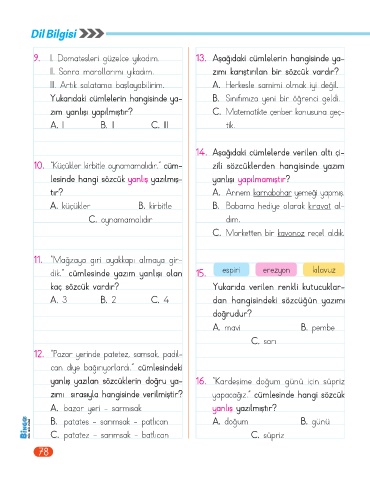 Dil Bilgisi
9. I. Domatesleri güzelce yıkadım.
II. Sonra marollarımı yıkadım.
III. Artık salatama başlayabilirim.
Yukarıdaki cümlelerin hangisinde ya-
zım yanlışı yapılmıştır?
A. I B. II C. III
10. "Küçükler kirbitle oynamamalıdır." cüm-
lesinde hangi sözcük yanlış yazılmış-
tır?
A. küçükler B. kirbitle
C. oynamamalıdır
11. "Mağzaya giri ayakkapı almaya gir-
dik." cümlesinde yazım yanlışı olan
kaç sözcük vardır?
A. 3 B. 2 C. 4
12. "Pazar yerinde patetez, samsak, padıl-
can diye bağırıyorlardı." cümlesindeki
yanlış yazılan sözcüklerin doğru ya-
zımı sırasıyla hangisinde verilmiştir?
A. bazar yeri - sarmısak
B. patates - sarımsak - patlıcan
C. patatez - sarımsak - batlıcan
13. Aşağıdaki cümlelerin hangisinde ya-
zımı karıştırılan bir sözcük vardır?
A. Herkesle samimi olmak iyi değil.
B. Sınıfımıza yeni bir öğrenci geldi.
C. Matematikte çenber konusuna geç-
tik.
14. Aşağıdaki cümlelerde verilen altı çi-
zili sözcüklerden hangisinde yazım
yanlışı yapılmamıştır?
A. Annem karnabahar yemeği yapmış.
B. Babama hediye olarak kıravat al-
dım.
C. Marketten bir kavonoz reçel aldık.
15. espiri erezyon kılavuz
Yukarıda verilen renkli kutucuklar-
dan hangisindeki sözcüğün yazımı
doğrudur?
A. mavi B. pembe
C. sarı
16. "Kardeşime doğum günü için süpriz
yapacağız." cümlesinde hangi sözcük
yanlış yazılmıştır?
A. doğum B. günü
C. süpriz
78